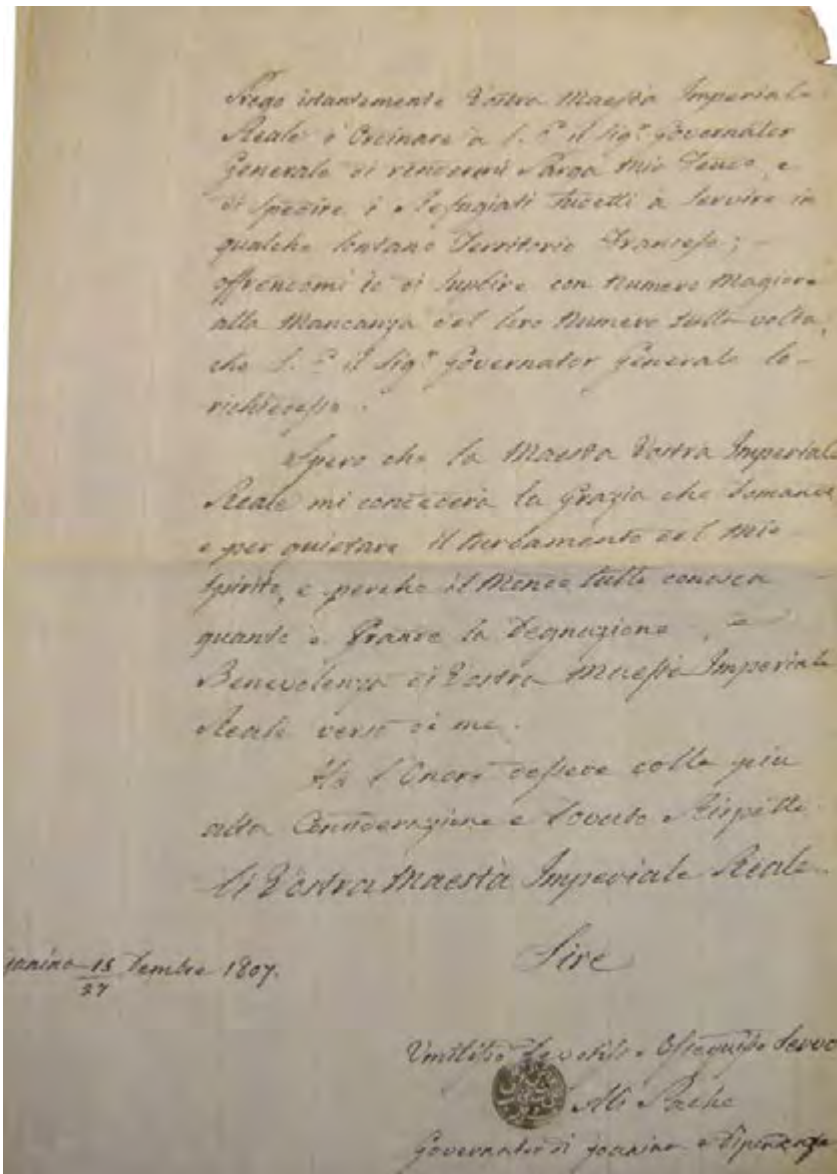 Prego istantemente Vostra Maestà Imperiale
Reale d'Ordinare a S. E. il Sigr. Governator
Generale di rendermi Parga mio Feudo, e
di spedire i Refugiati sudetti à servire in
qualche lontano Territorio Francese; –
offrendomi io di suplire con Numero Magiore
alla Mancanza del loro Numero tutte volte,
che S. E. il Sigr. Governator Generale lo –
richiedesse.
Spero che la Maestà Vostra Imperiale
Reale mi concederà la Grazia che domando
e per quietare il turbamento del mio –
spirito, e perche il Mondo tutto conosca –
quanto è Grande la Degnazione, e
Benevolenza di Vostra Maestà Imperiale
Reale verso di me.
Hò l'Onore d'essere colla più
alta Considerazione e dovuto Rispetto
Di Vostra Maestà Imperiale Reale
Sire
Janina 15/27 1807.
Umilissimo Devotissimo Ossequioso Servo
Ali Pacha
Governator di Joanina e Dipendenze